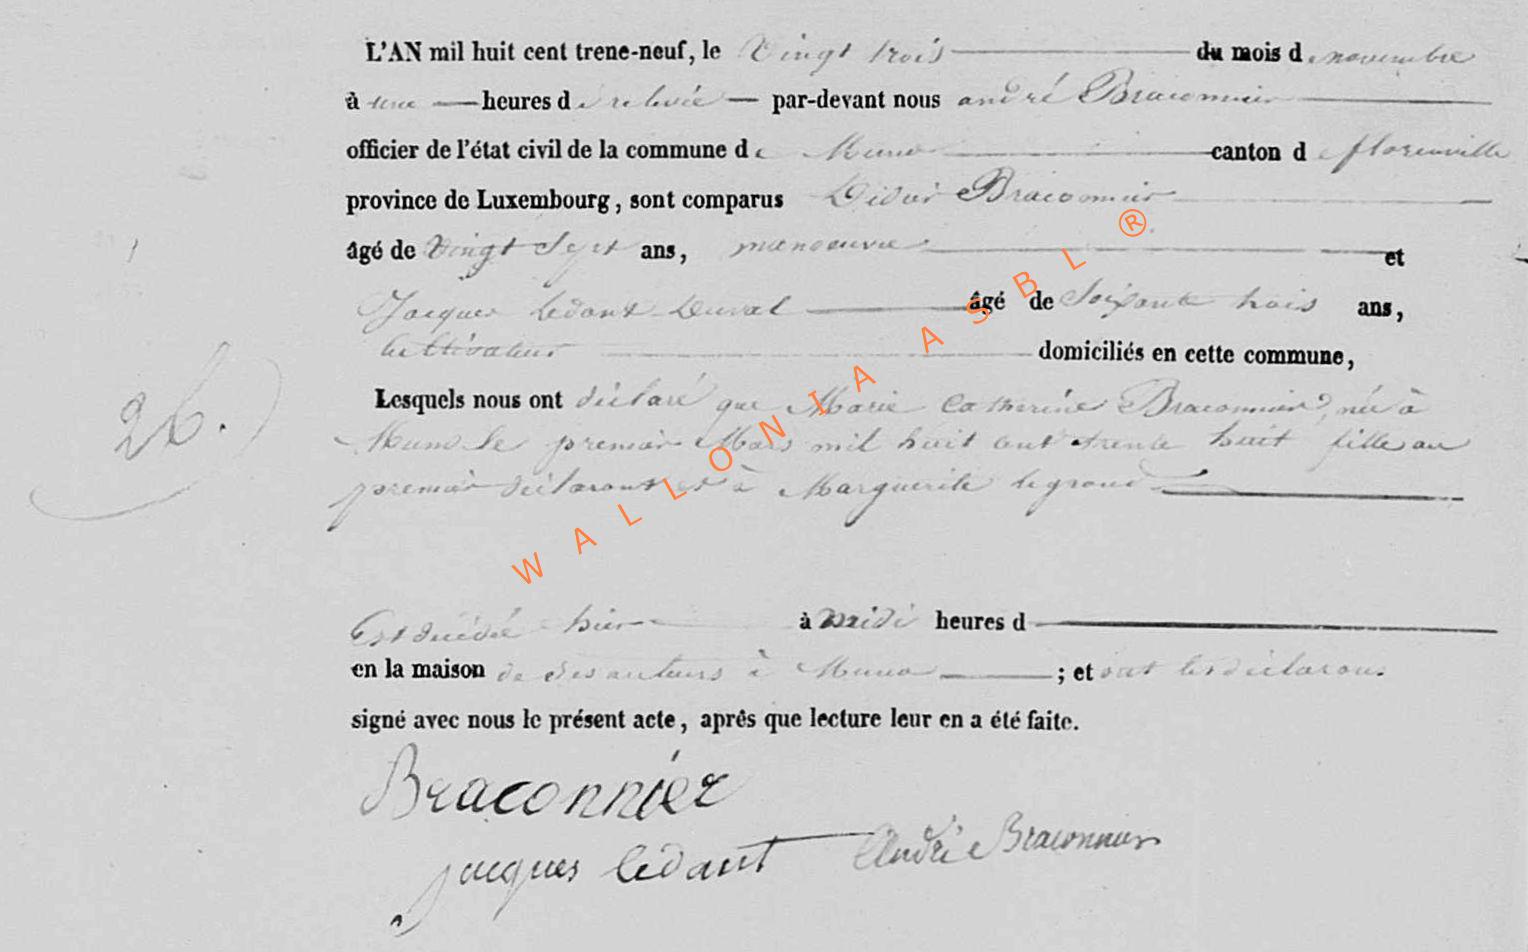 L'AN mil huit cent trene-neuf, le Vingt trois du mois de novembre
à une heures de relevée par-devant nous andré Braconnier
officier de l'état civil de la commune de Muno canton de florenville
province de Luxembourg, sont comparus Didier Braconnier
âgé de Vingt Sept ans, manoeuvre et
Jacques Ledant Duval âgé de Soixante trois ans,
Cultivateur domiciliés en cette commune,
Lesquels nous ont déclaré que Marie Catherine Braconnier, née à
26.
Muno le premier Mars mil huit cent trente huit fille au
premier déclarant et à Marguerite legrand
Est décédée hier à Midi heures d
en la maison de ses auteurs à Muno ; et ont les déclarans
signé avec nous le présent acte, après que lecture leur en a été faite.
Braconnier
jacques ledant André Braconnier
WALLONIA ASBL ®